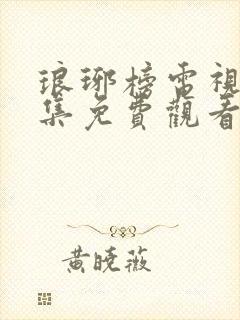 琅琊榜電視
集免費觀看
黃曉薇